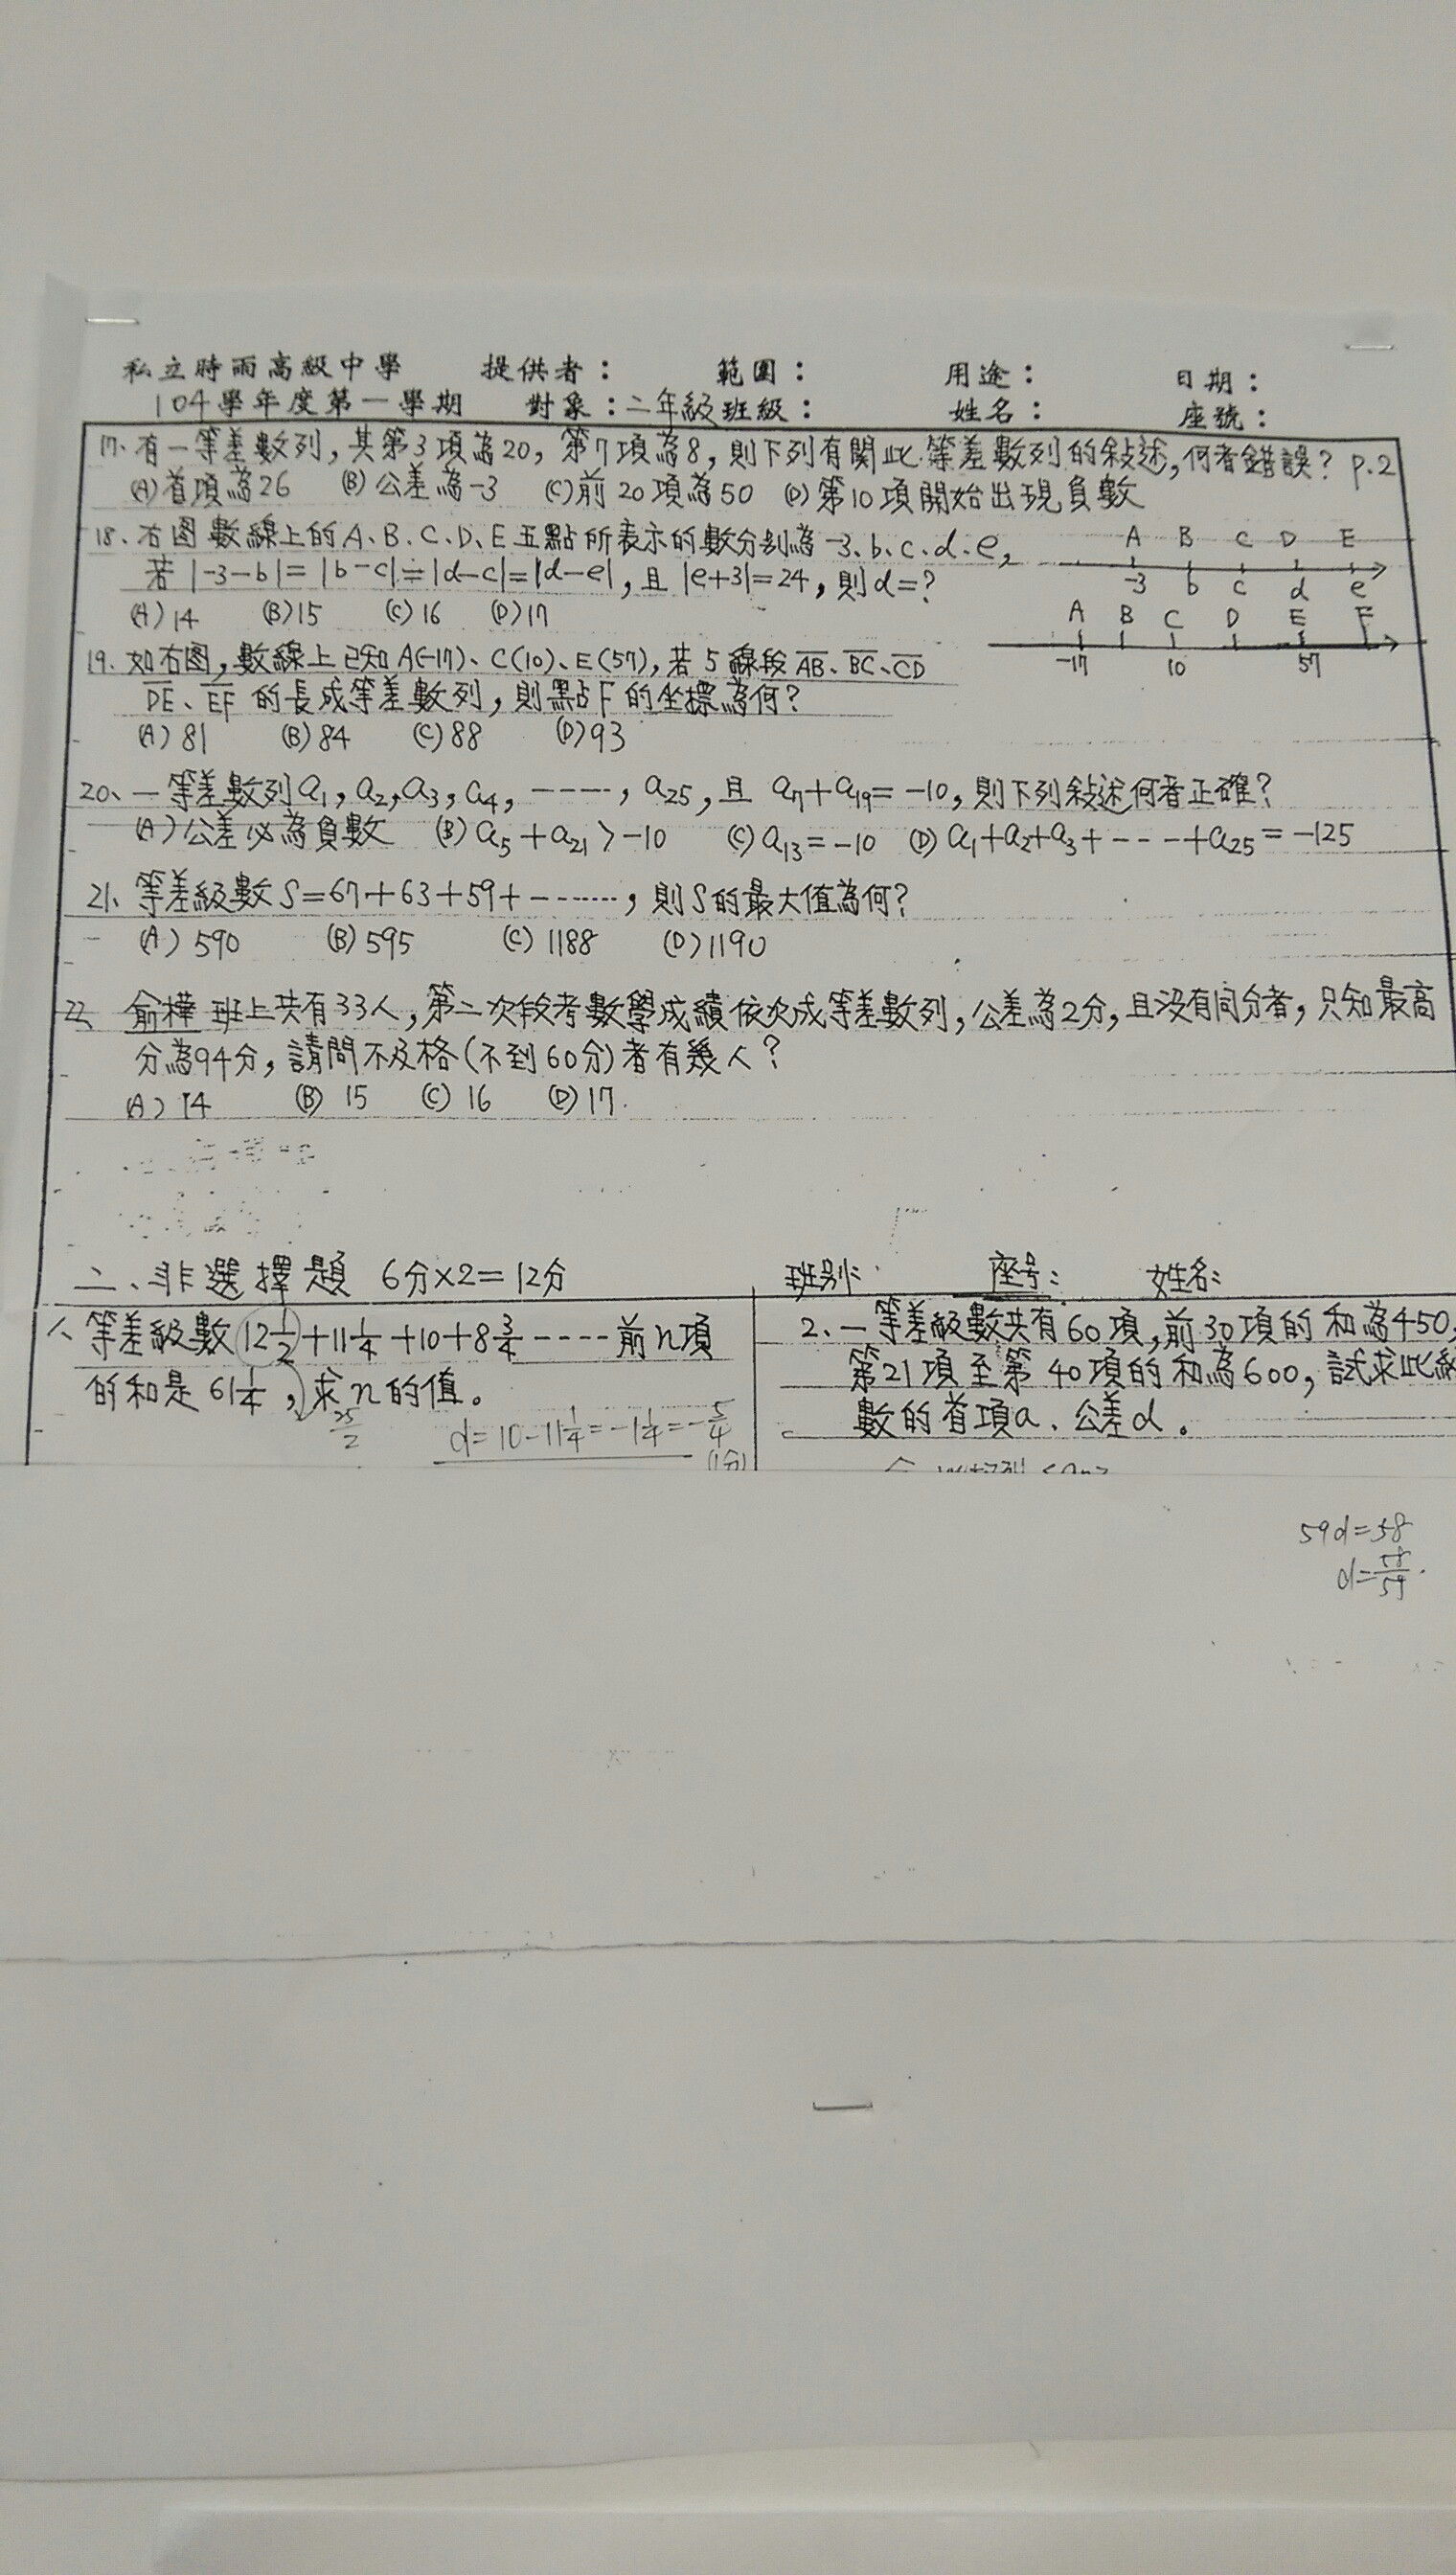 私立時雨高級中學 提供者： 範圍： 用途： 日期：
104學年度第一學期 對象：二年級 班級： 姓名： 座號：
17、有一等差數列，其第3項為20，第7項為8，則下列有關此等差數列的敍述，何者錯誤？ P.2
(A)首項為26 (B)公差為-3 (C)前20項為50 (D)第10項開始出現負數
18、右图數線上的A、B、C、D、E五點所表示的數分別為-3、b、c、d、e，
若|-3-b|=|b-c|=|d-c|=|d-e|，且|e+3|=24，則d=？
(A)14 (B)15 (C)16 (D)17
A B C D E
-3 b c d e
19、如右图，數線上已知A(-17)、C(10)、E(57)，若5線段AB、BC、CD
DE、EF的長成等差數列，則點F的坐標為何？
(A)81 (B)84 (C)88 (D)93
A B C D E F
-17 10 57
20、一等差數列a₁，a₂，a₃，a₄，-----，a₂₅，且 a₇+a₁₉=-10，則下列敍述何者正確？
(A)公差必為負數 (B)a₅+a₂₁>-10 (C)a₁₃=-10 (D)a₁+a₂+a₃+----+a₂₅=-125
21、等差級數S=67+63+59+-------，則S的最大值為何？
(A)590 (B)595 (C)1188 (D)1190
22、俞樺班上共有33人，第二次段考數學成績依次成等差數列，公差為2分，且没有同分者，只知最高
分為94分，請問不及格(不到60分)者有幾人？
(A)14 (B)15 (C)16 (D)17
二、非選擇題 6分×2=12分 班别： 座号： 姓名：
1、等差級數12½+11¼+10+8¾----前n項
的和是61¼，求n的值。
25/2
d=10-11¼=-1¼=-5/4
(1分)
2、一等差級數共有60項，前30項的和為450，
第21項至第40項的和為600，試求此級
數的首項a、公差d。
59d=58
d=58/59